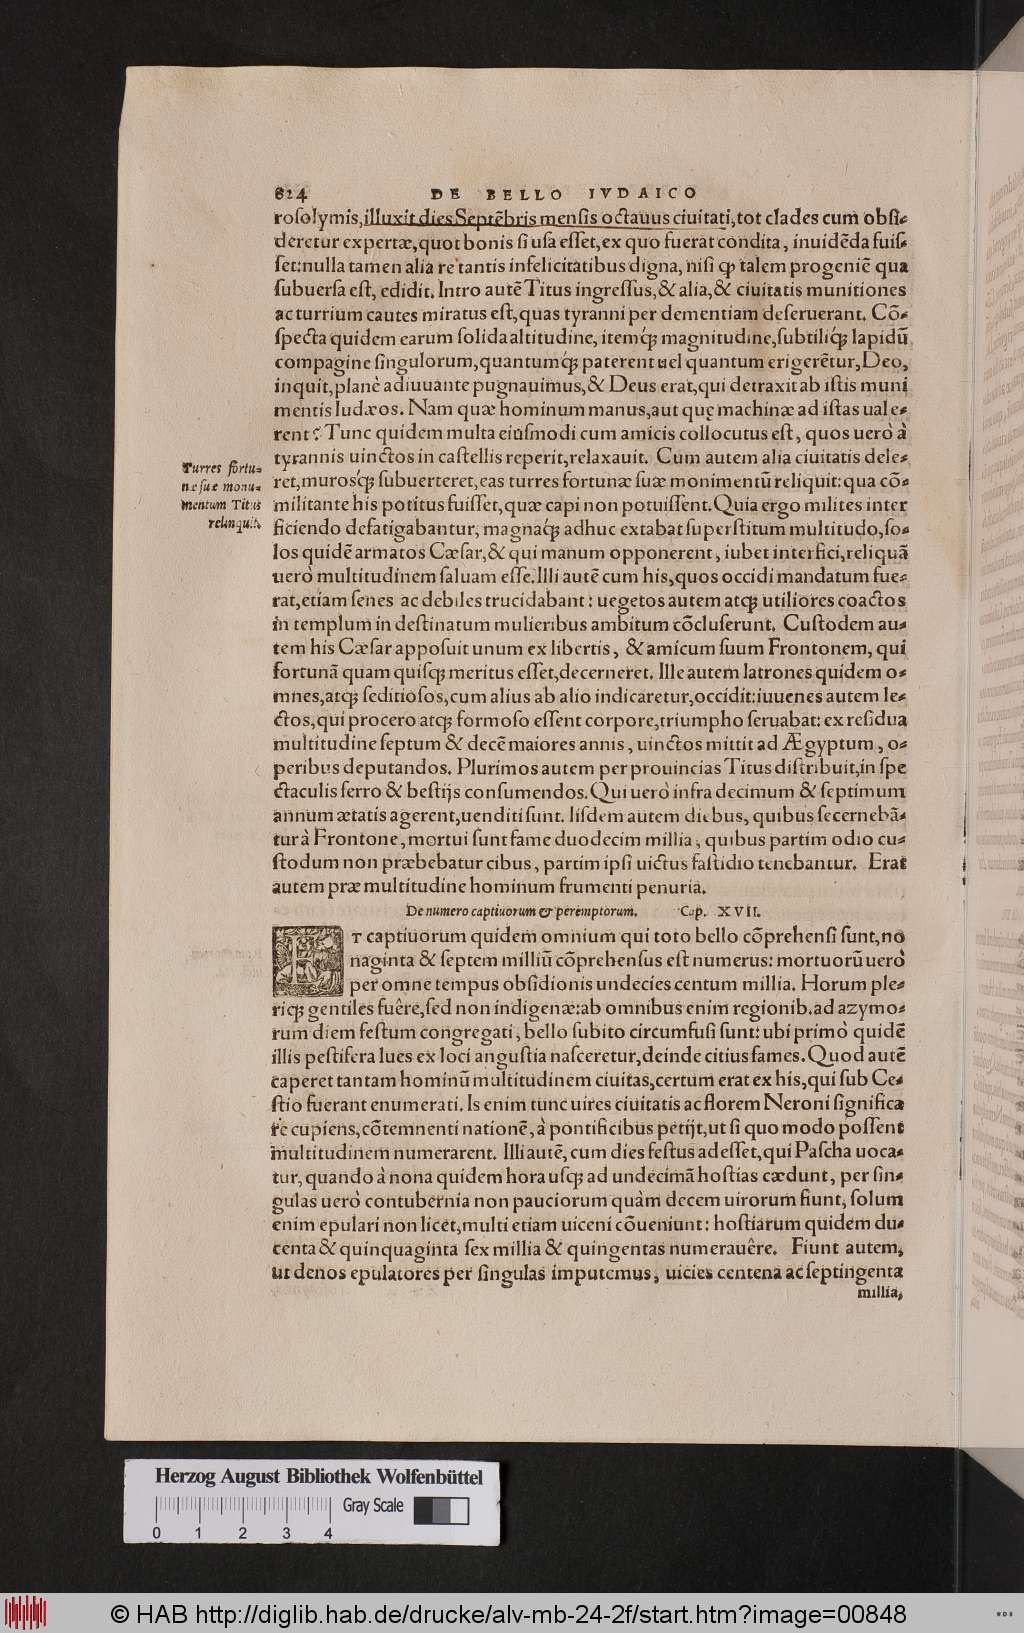 824 DE BELLO IVDAICO
roſolymis, illuxit dies Septẽbris menſis octauus ciuitati, tot clades cum obſi-
deretur expertæ, quot bonis ſi uſa eſſet, ex quo fuerat condita, inuidẽda fuiſ-
ſet: nulla tamen alia re tantis infelicitatibus digna, niſi ꝙ talem progeniẽ qua
ſubuerſa eſt, edidit. Intro autẽ Titus ingreſſus, & alia, & ciuitatis munitiones
ac turrium cautes miratus eſt, quas tyranni per dementiam deſeruerant. Cõ-
ſpecta quidem earum ſolida altitudine, itemq́; magnitudine, ſubtiliq́; lapidũ
compagine ſingulorum, quantumq́; paterent uel quantum erigerẽtur, Deo,
inquit, planè adiuuante pugnauimus, & Deus erat, qui detraxit ab iſtis muni
mentis Iudæos. Nam quæ hominum manus, aut quę machinæ ad iſtas uale-
rent? Tunc quidem multa eiuſmodi cum amicis collocutus eſt, quos uerò à
tyrannis uinctos in caſtellis reperit, relaxauit. Cum autem alia ciuitatis dele-
ret, murosq́; ſubuerteret, eas turres fortunæ ſuæ monimentũ reliquit: qua cõ-
militante his potitus fuiſſet, quæ capi non potuiſſent. Quia ergo milites inter
ficiendo defatigabantur, magnaq́; adhuc extabat ſuperſtitum multitudo, ſo-
los quidẽ armatos Cæſar, & qui manum opponerent, iubet interfici, reliquã
uerò multitudinem ſaluam eſſe. Illi autẽ cum his, quos occidi mandatum fue-
rat, etiam ſenes ac debiles trucidabant: uegetos autem atq; utiliores coactos
in templum in deſtinatum mulieribus ambitum cõcluſerunt. Cuſtodem au-
tem his Cæſar appoſuit unum ex libertis, & amicum ſuum Frontonem, qui
fortunã quam quiſq; meritus eſſet, decerneret. Ille autem latrones quidem o-
mnes, atq; ſeditioſos, cum alius ab alio indicaretur, occidit: iuuenes autem le-
ctos, qui procero atq; formoſo eſſent corpore, triumpho ſeruabat: ex reſidua
multitudine ſeptum & decẽ maiores annis, uinctos mittit ad Ægyptum, o-
peribus deputandos. Plurimos autem per prouincias Titus diſtribuit, in ſpe
ctaculis ferro & beſtijs conſumendos. Qui uerò infra decimum & ſeptimum
annum ætatis agerent, uenditi ſunt. Iiſdem autem diebus, quibus ſecernebã-
tur à Frontone, mortui ſunt fame duodecim millia, quibus partim odio cu-
ſtodum non præbebatur cibus, partim ipſi uictus faſtidio tenebantur. Erat
autem præ multitudine hominum frumenti penuria.
Turres fortu-
næ ſuæ monu-
mentum Titus
relinquit.
De numero captiuorum & peremptorum. Cap. XVII.
ET captiuorum quidem omnium qui toto bello cõprehenſi ſunt, no
naginta & ſeptem milliũ cõprehenſus eſt numerus: mortuorũ uerò
per omne tempus obſidionis undecies centum millia. Horum ple-
riq; gentiles fuêre, ſed non indigenæ: ab omnibus enim regionib. ad azymo-
rum diem feſtum congregati, bello ſubito circumfuſi ſunt: ubi primò quidẽ
illis peſtifera lues ex loci anguſtia naſceretur, deinde citius fames. Quod autẽ
caperet tantam hominũ multitudinem ciuitas, certum erat ex his, qui ſub Ce-
ſtio fuerant enumerati. Is enim tunc uires ciuitatis ac florem Neroni ſignifica
re cupiens, cõtemnenti nationẽ, à pontificibus petijt, ut ſi quo modo poſſent
multitudinem numerarent. Illi autẽ, cum dies feſtus adeſſet, qui Paſcha uoca-
tur, quando à nona quidem hora uſq; ad undecimã hoſtias cædunt, per ſin-
gulas uerò contubernia non pauciorum quàm decem uirorum fiunt, ſolum
enim epulari non licet, multi etiam uiceni cõueniunt: hoſtiarum quidem du-
centa & quinquaginta ſex millia & quingentas numerauêre. Fiunt autem,
ut denos epulatores per ſingulas imputemus, uicies centena ac ſeptingenta
millia,
Herzog August Bibliothek Wolfenbüttel
Gray Scale
0 1 2 3 4
© HAB http://diglib.hab.de/drucke/alv-mb-24-2f/start.htm?image=00848